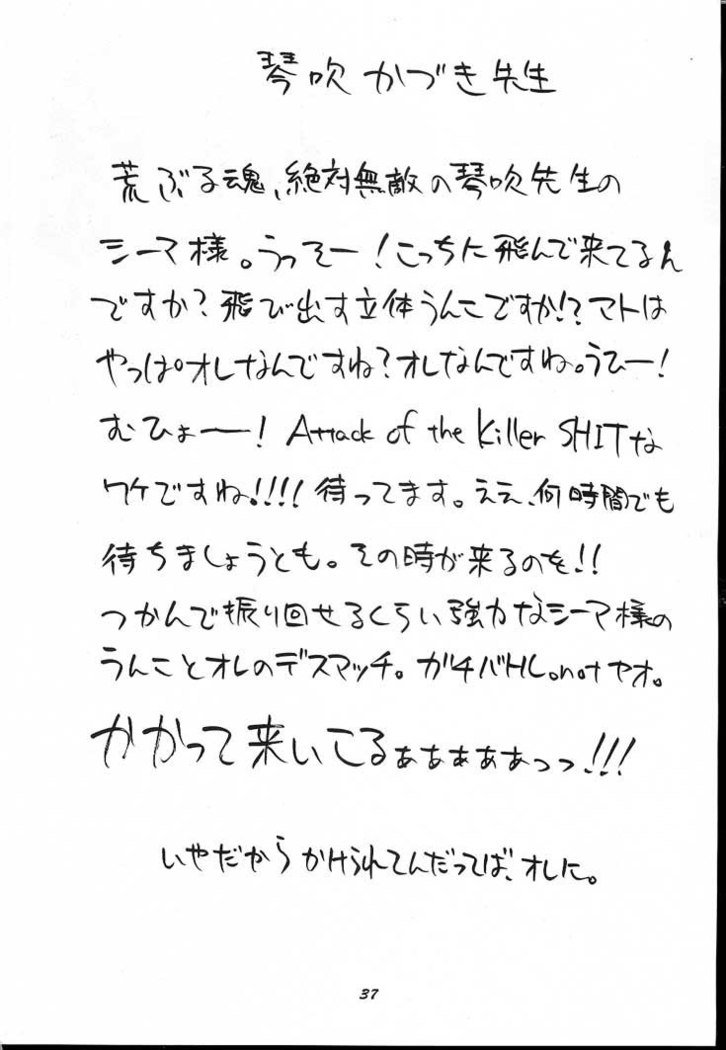 琴吹かづき先生
荒ぶる魂、絶対無敵の琴吹先生の
シーマ様。うっそー!こっちに飛んで来てるん
ですか?飛び出す立体うんこですか!?マトは
やっぱオレなんですね?オレなんですね。うひー!
むひょー!Attack of the Killer SHITな
ワケですね!!!!待ってます。ええ、何時間でも
待ちましょうとも。その時が来るのを!!
つかんで振り回せるくらい強力なシーマ様の
うんことオレのデスマッチ。ガチバトル。notヤオ。
かかって来いこるぁぁぁぁぁっっ!!!
いやだからかけられてんだってば、オレに。
37